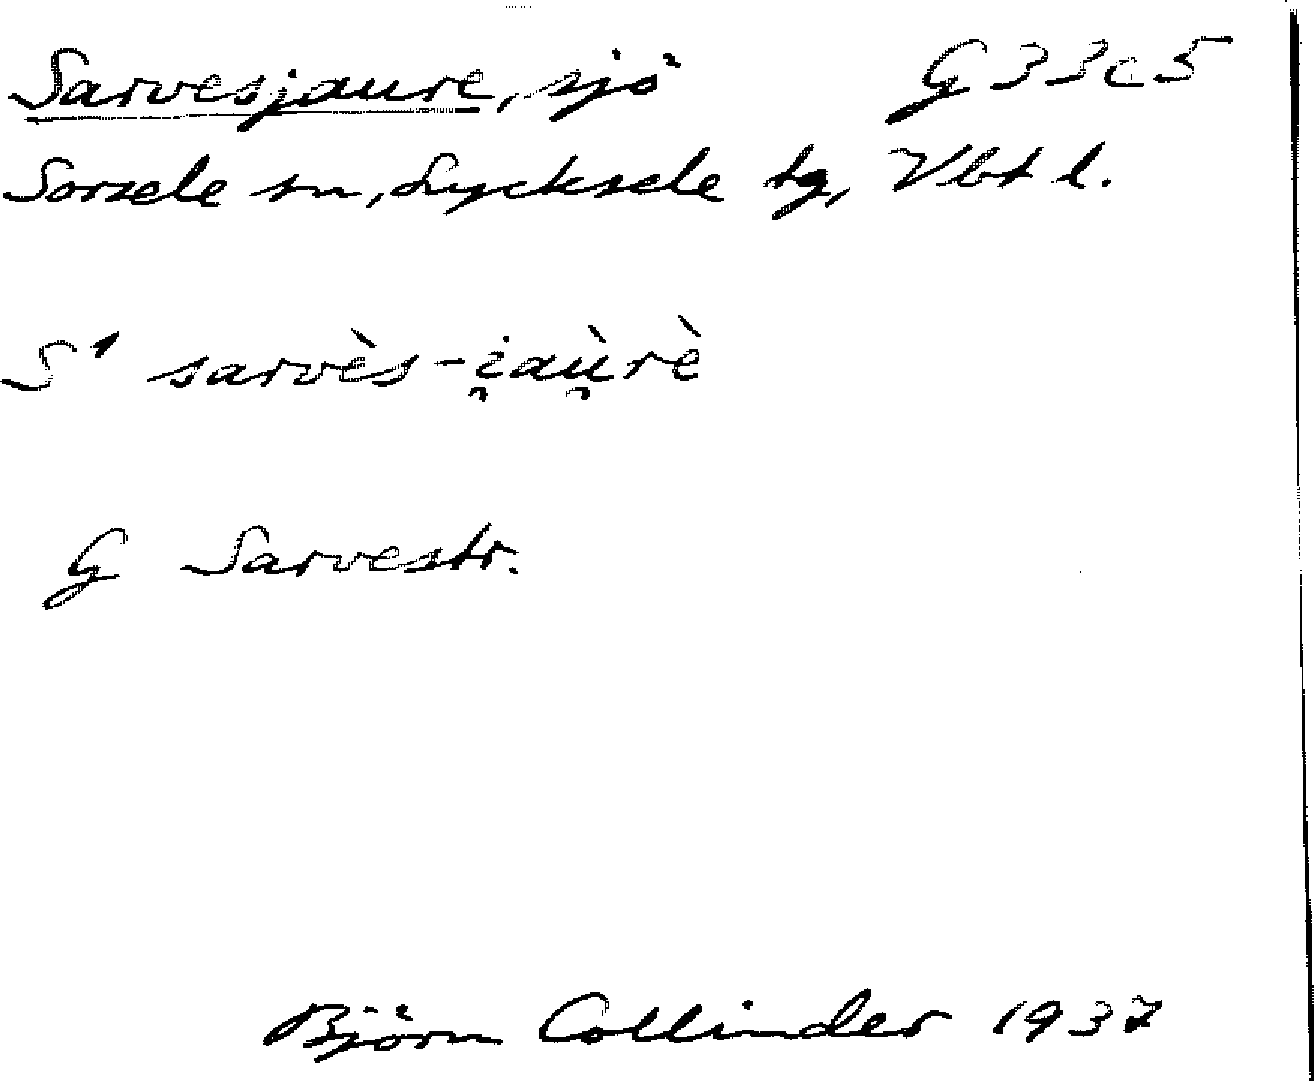 Sarvesjaure, sjö G 33c5
Sorsele sn, Lycksele tg, Vbt l.
S¹ sarvès-i̯aù̯rè
G Sarvestr.
Björn Collinder 1937